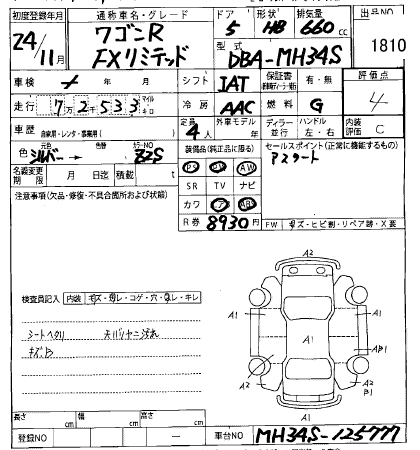 初度登録年月 通称車名・グレード ドア 形状 排気量 出品NO
24/11月 ワゴンR FXリミテッド 5 HB 660cc 1810
型式 DBA-MH34S
車検 年 月 シフト IAT 保証書 有・無 評価点 4
走行 7万2533 マイル キロ 冷房 AAC 燃料 G
車歴 自家用・レンタ・事業用( ) 定員 4人 外車モデル 年 ディーラー 並行 ハンドル 左・右 内装評価 C
色 元色 シルバー→ 色替 カラーNO Z2S 装備品(純正品に限る) セールスポイント(正常に機能するもの)
PS PW AW アスタート
名義変更期限 月 日迄 積載 t SR TV ナビ
注意事項(欠品・修復・不具合箇所および状態) カワ ア ABS
R券 8930円 FW キズ・ヒビ割・リペア跡・X要
検査員記入 内装 キズ・切レ・コゲ・穴・切レ・キレ
シートヘタリ 天バリヤニ汚れ
キズ
A2
A1 A1 A1
A1
AB1
A2 A2
A1
長さ cm 幅 cm 高さ cm
登録NO 車台NO MH34S-125777